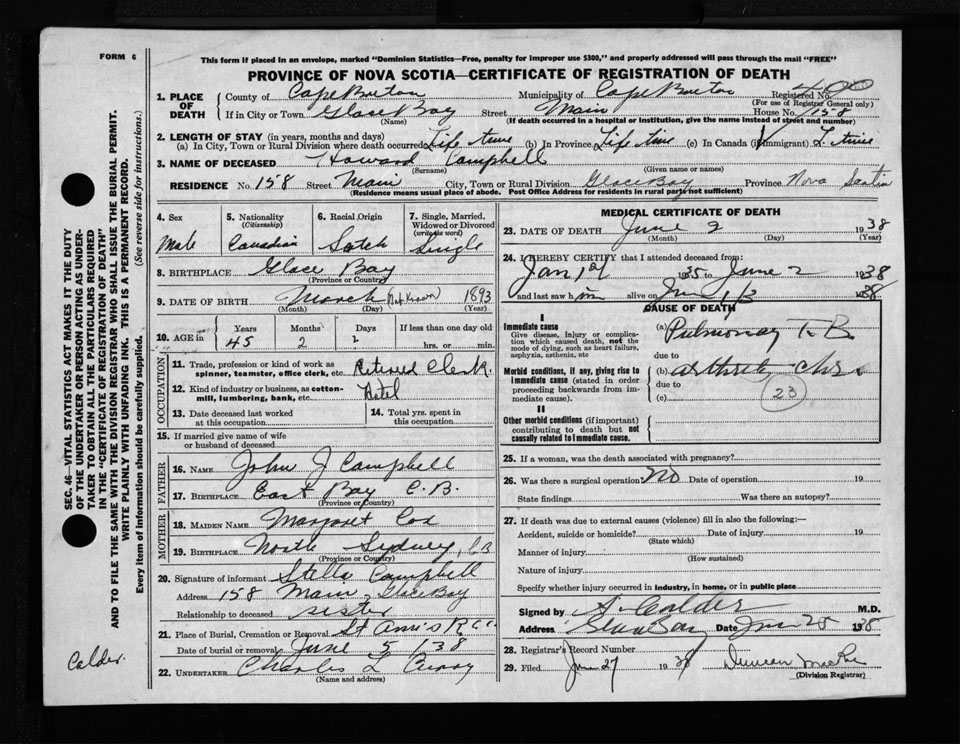 FORM 6
This form if placed in an envelope, marked "Dominion Statistics—Free, penalty for improper use $300," and properly addressed will pass through the mail "FREE"
PROVINCE OF NOVA SCOTIA—CERTIFICATE OF REGISTRATION OF DEATH
1. PLACE OF DEATH
County of Cape Breton Municipality of Cape Breton Registered No.
(For use of Registrar General only)
If in City or Town Glace Bay Street Main House No. 158
(Name) (If death occurred in a hospital or institution, give the name instead of street and number)
2. LENGTH OF STAY (in years, months and days)
(a) In City, Town or Rural Division where death occurred Life time (b) In Province Life time (c) In Canada (if immigrant) L time
3. NAME OF DECEASED Howard Campbell
(Surname) (Given name or names)
RESIDENCE No. 158 Street Main City, Town or Rural Division Glace Bay Province Nova Scotia
(Residence means usual place of abode. Post Office Address for residents in rural parts not sufficient)
4. Sex Male
5. Nationality (Citizenship) Canadian
6. Racial Origin Scotch
7. Single, Married, Widowed or Divorced (write the word) Single
8. BIRTHPLACE Glace Bay
(Province or Country)
9. DATE OF BIRTH March Not Known 1893
(Month) (Day) (Year)
10. AGE in Years Months Days If less than one day old
45 2 2 hrs. or min.
OCCUPATION
11. Trade, profession or kind of work as spinner, teamster, office clerk, etc. Retired Clerk
12. Kind of industry or business, as cotton-mill, lumbering, bank, etc. Hotel
13. Date deceased last worked at this occupation
14. Total yrs. spent in this occupation
15. If married give name of wife or husband of deceased
FATHER
16. NAME John J Campbell
17. BIRTHPLACE East Bay C.B.
(Province or Country)
MOTHER
18. MAIDEN NAME Margaret Cox
19. BIRTHPLACE North Sydney, CB
(Province or Country)
20. Signature of informant Stella Campbell
Address 158 Main Glace Bay
Relationship to deceased sister
21. Place of Burial, Cremation or Removal St Ann's R.C.
Date of burial or removal June 5 1938
22. UNDERTAKER Charles L Curry
(Name and address)
MEDICAL CERTIFICATE OF DEATH
23. DATE OF DEATH June 2 1938
(Month) (Day) (Year)
24. I HEREBY CERTIFY that I attended deceased from:
Jan 1935 to June 2 1938
and last saw him alive on 1938
CAUSE OF DEATH
I
Immediate cause
Give disease, injury or complication which caused death, not the mode of dying, such as heart failure, asphyxia, asthenia, etc
(a) Pulmonary T. B
due to
Morbid conditions, if any, giving rise to immediate cause (stated in order proceeding backwards from immediate cause).
(b) arthritis
due to
(c) 23
II
Other morbid conditions (if important) contributing to death but not causally related to immediate cause.
25. If a woman, was the death associated with pregnancy?
26. Was there a surgical operation? No Date of operation 19
State findings Was there an autopsy?
27. If death was due to external causes (violence) fill in also the following:—
Accident, suicide or homicide? Date of injury 19
(State which)
Manner of injury
(How sustained)
Nature of injury
Specify whether injury occurred in industry, in home, or in public place
Signed by A. Calder M.D.
Address Glace Bay Date Jun 25 1938
28. Registrar's Record Number
29. Filed Jun 27 1938 Duncan MacRae
(Division Registrar)
SEC. 46—VITAL STATISTICS ACT MAKES IT THE DUTY
OF THE UNDERTAKER OR PERSON ACTING AS UNDER-
TAKER TO OBTAIN ALL THE PARTICULARS REQUIRED
IN THE "CERTIFICATE OF REGISTRATION OF DEATH"
AND TO FILE THE SAME WITH THE DIVISION REGISTRAR WHO SHALL ISSUE THE BURIAL PERMIT.
WRITE PLAINLY WITH UNFADING INK. THIS IS A PERMANENT RECORD.
Every item of information should be carefully supplied. (See reverse side for instructions.)
Calder.